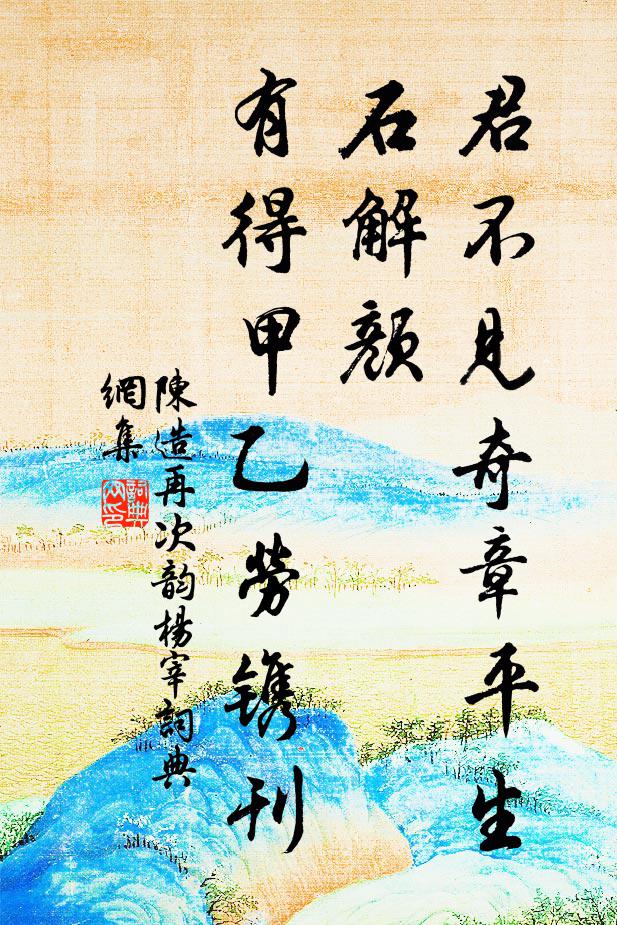 君不見奇章平生
石解顏
有得甲乙勞鐫刊
陳造再次韵楊宰詞典
網集